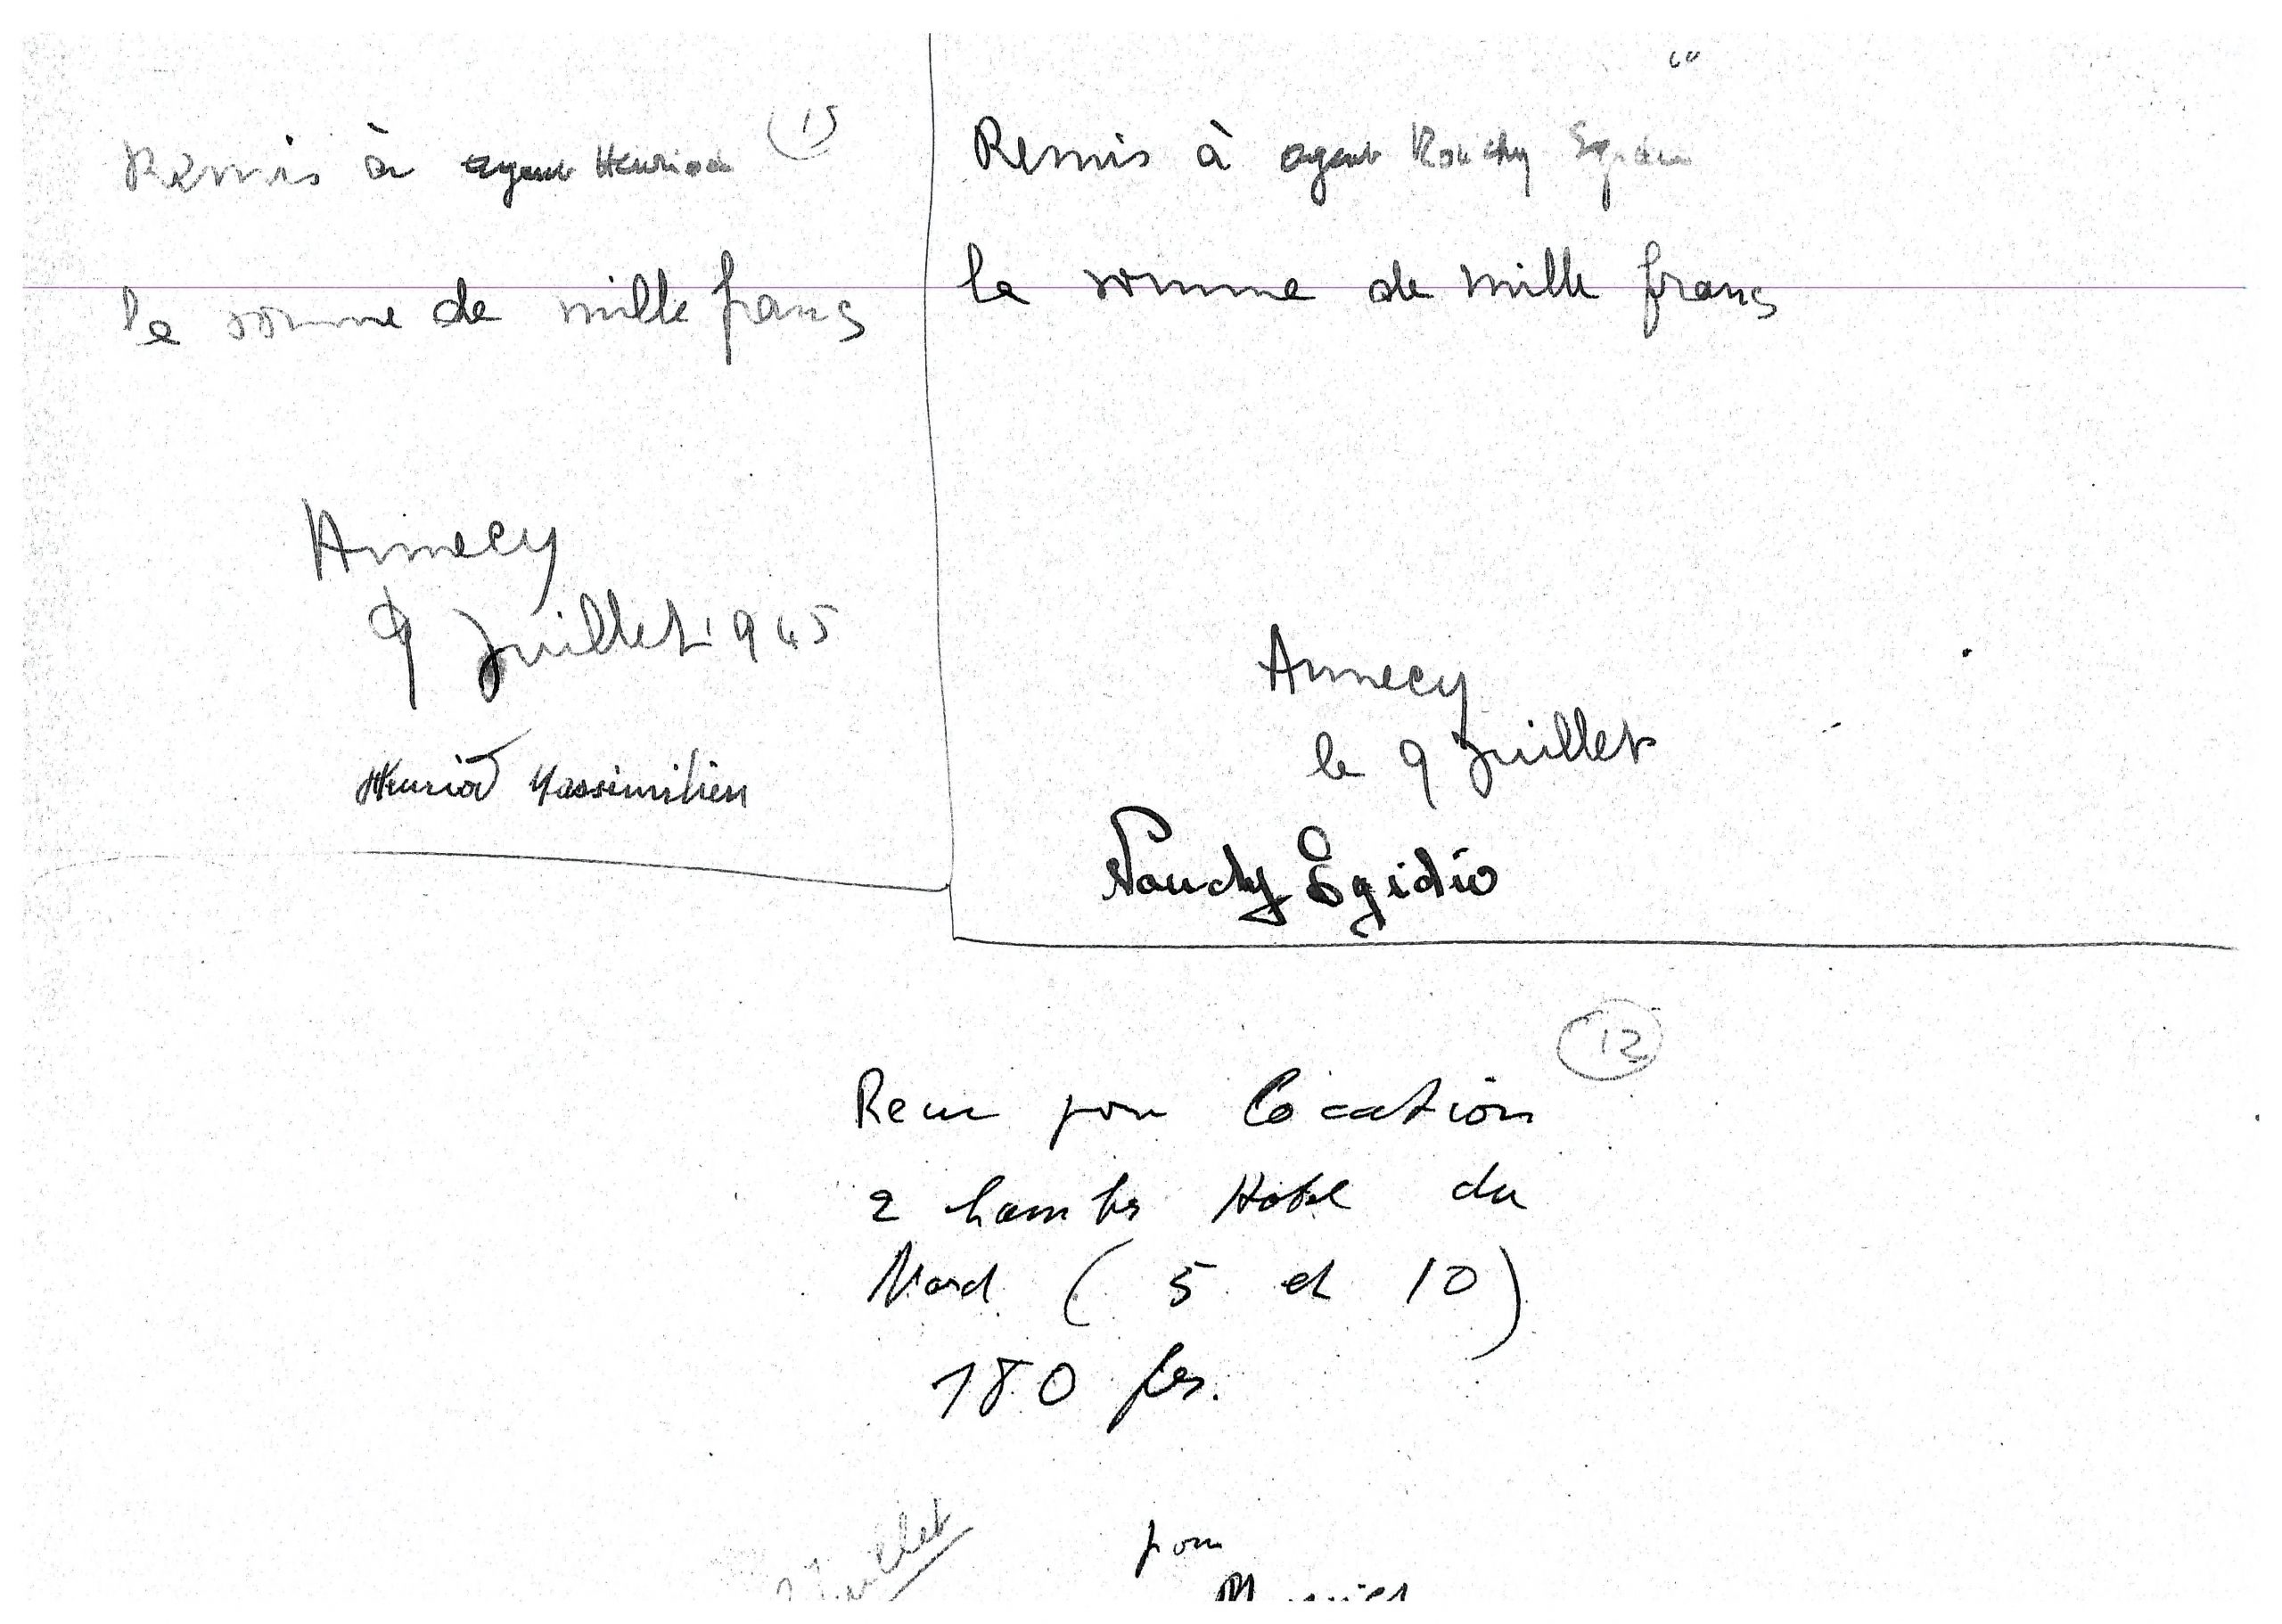 15
Remis à agent Henriod
la somme de mille francs
Annecy
9 Juillet 1945
Henriod Massimilien
Remis à agent Egidio
la somme de mille francs
Annecy
le 9 Juillet
Egidio
12
Recu pour Location
2 chambres Hotel du
Nord ( 5 et 10)
180 frs.
Juillet
pour